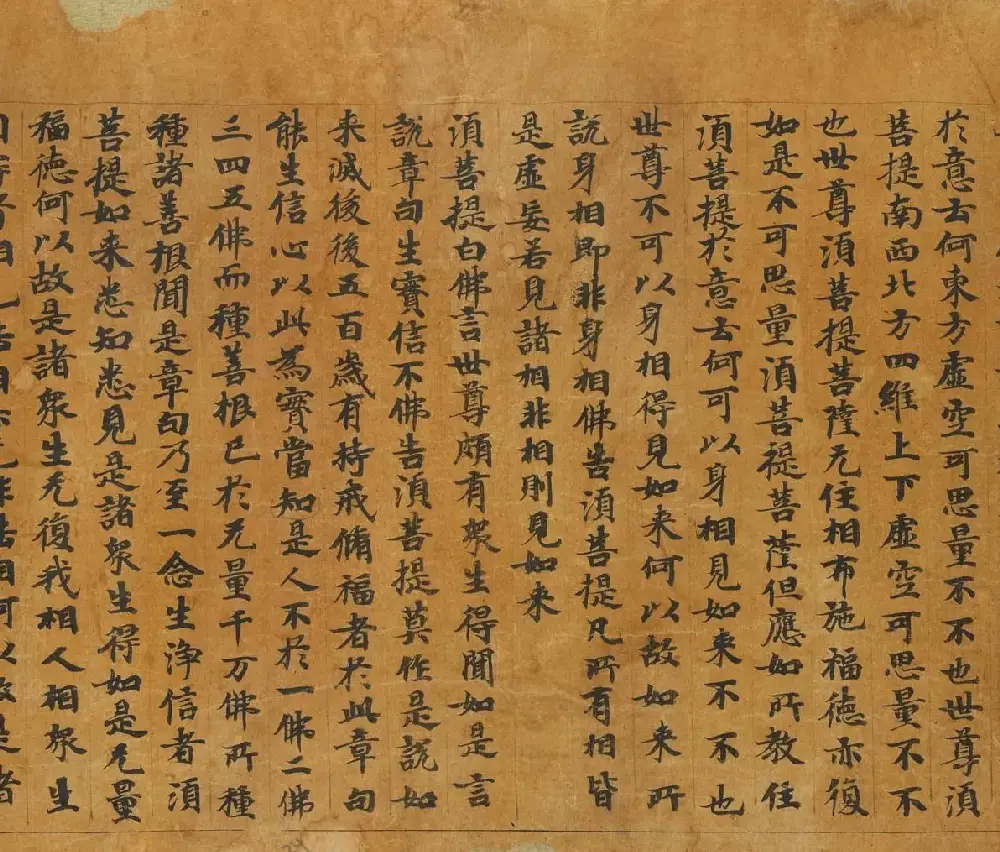 於意云何東方虛空可思量不不也世尊須
菩提南西北方四維上下虛空可思量不不
也世尊須菩提菩薩无住相布施福德亦復
如是不可思量須菩提菩薩但應如所教住
須菩提於意云何可以身相見如来不不也
世尊不可以身相得見如来何以故如来所
說身相即非身相佛告須菩提凡所有相皆
是虛妄若見諸相非相則見如来
須菩提白佛言世尊頗有衆生得聞如是言
說章句生實信不佛告須菩提莫作是說如
来滅後後五百歲有持戒脩福者於此章句
能生信心以此為實當知是人不於一佛二佛
三四五佛而種善根已於无量千万佛所種
種諸善根聞是章句乃至一念生淨信者須
菩提如来悉知悉見是諸衆生得如是无量
福德何以故是諸衆生无復我相人相衆生